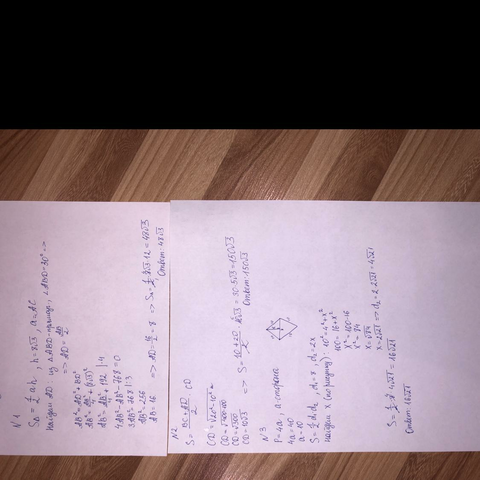 N 1
S△ = 1/2 ah, h = 8√3, a = AC
Найдем AD из △ABD-прямоуг, ∠ABD=30° =>
=> AD = AB/2
AB² = AD² + BD²
AB² = AB²/4 + (8√3)²
AB² = AB²/4 + 192 |·4
4AB² - AB² - 768 = 0
3AB² = 768 |:3
AB² = 256
AB = 16 => AD = 16/2 = 8 => S△ = 1/2 · 8√3 · 12 = 48√3
Ответ: 48√3
N2
S = BC + AD / 2 · CD
CD = √20² - 10²
CD = √400-100
CD = √300
CD = 10√3 => S =
Ответ: 150√3
N 3
P = 4a, a-сторона
4a = 40
a = 10
S = 1/2 d₁d₂, d₁ = 8, d₂ = 2x
Найдем x (по рисунку): 10² = 4² + x²
100 = 16 + x²
x² = 100 - 16
x² = 84
x = √84
x = 2√21 => d₂ = 2·2√21 = 4√21
S = 1/2 · 8 · 4√21 = 16√21
Ответ: 16√21